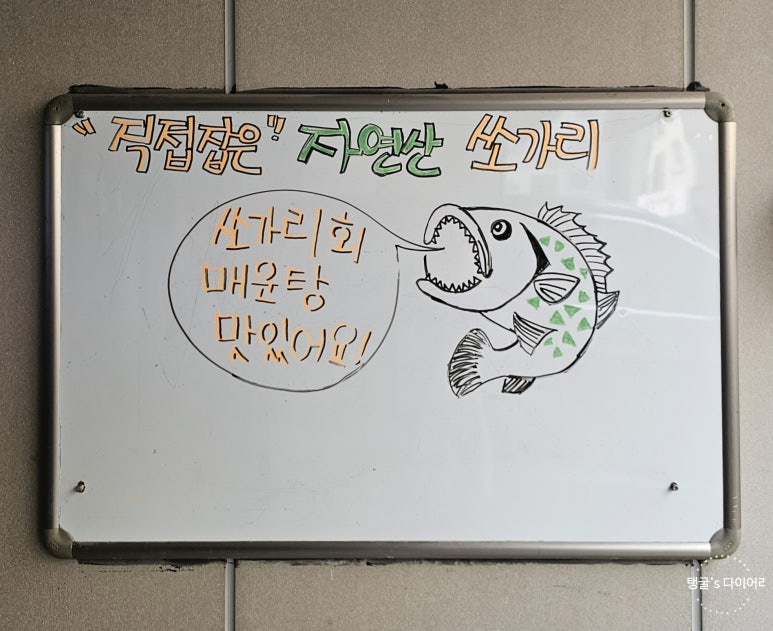 "직접잡은" 자연산 쏘가리
쏘가리회
매운탕
맛있어요!
탱굴's 다이어리